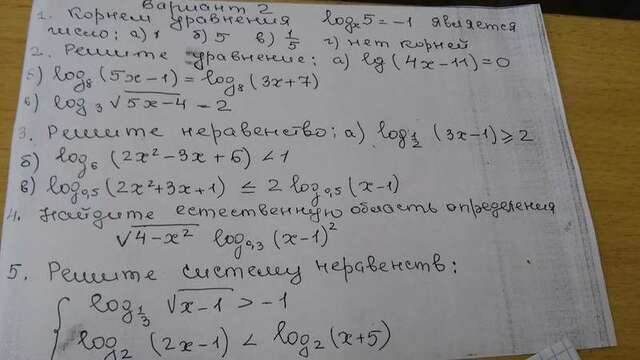 Вариант 2
1. Корнем уравнения logₓ5 = -1 является
число: а) 1 б) 5 в) 1/5 г) нет корней
2. Решите уравнение: а) lg(4x-11)=0
б) log₈(5x-1) = log₈(3x+7)
в) log₃√(5x-4) = 2
3. Решите неравенство: а) log_{1/2}(3x-1) ⩾ 2
б) log₆(2x²-3x+6) < 1
в) log₀,₅(2x²+3x+1) ≤ 2 log₀,₅(x-1)
4. Найдите естественную область определения
√(4-x²) log₀,₃(x-1)²
5. Решите систему неравенств:
{ log_{1/3} √(x-1) > -1
log₂(2x-1) < log₂(x+5)